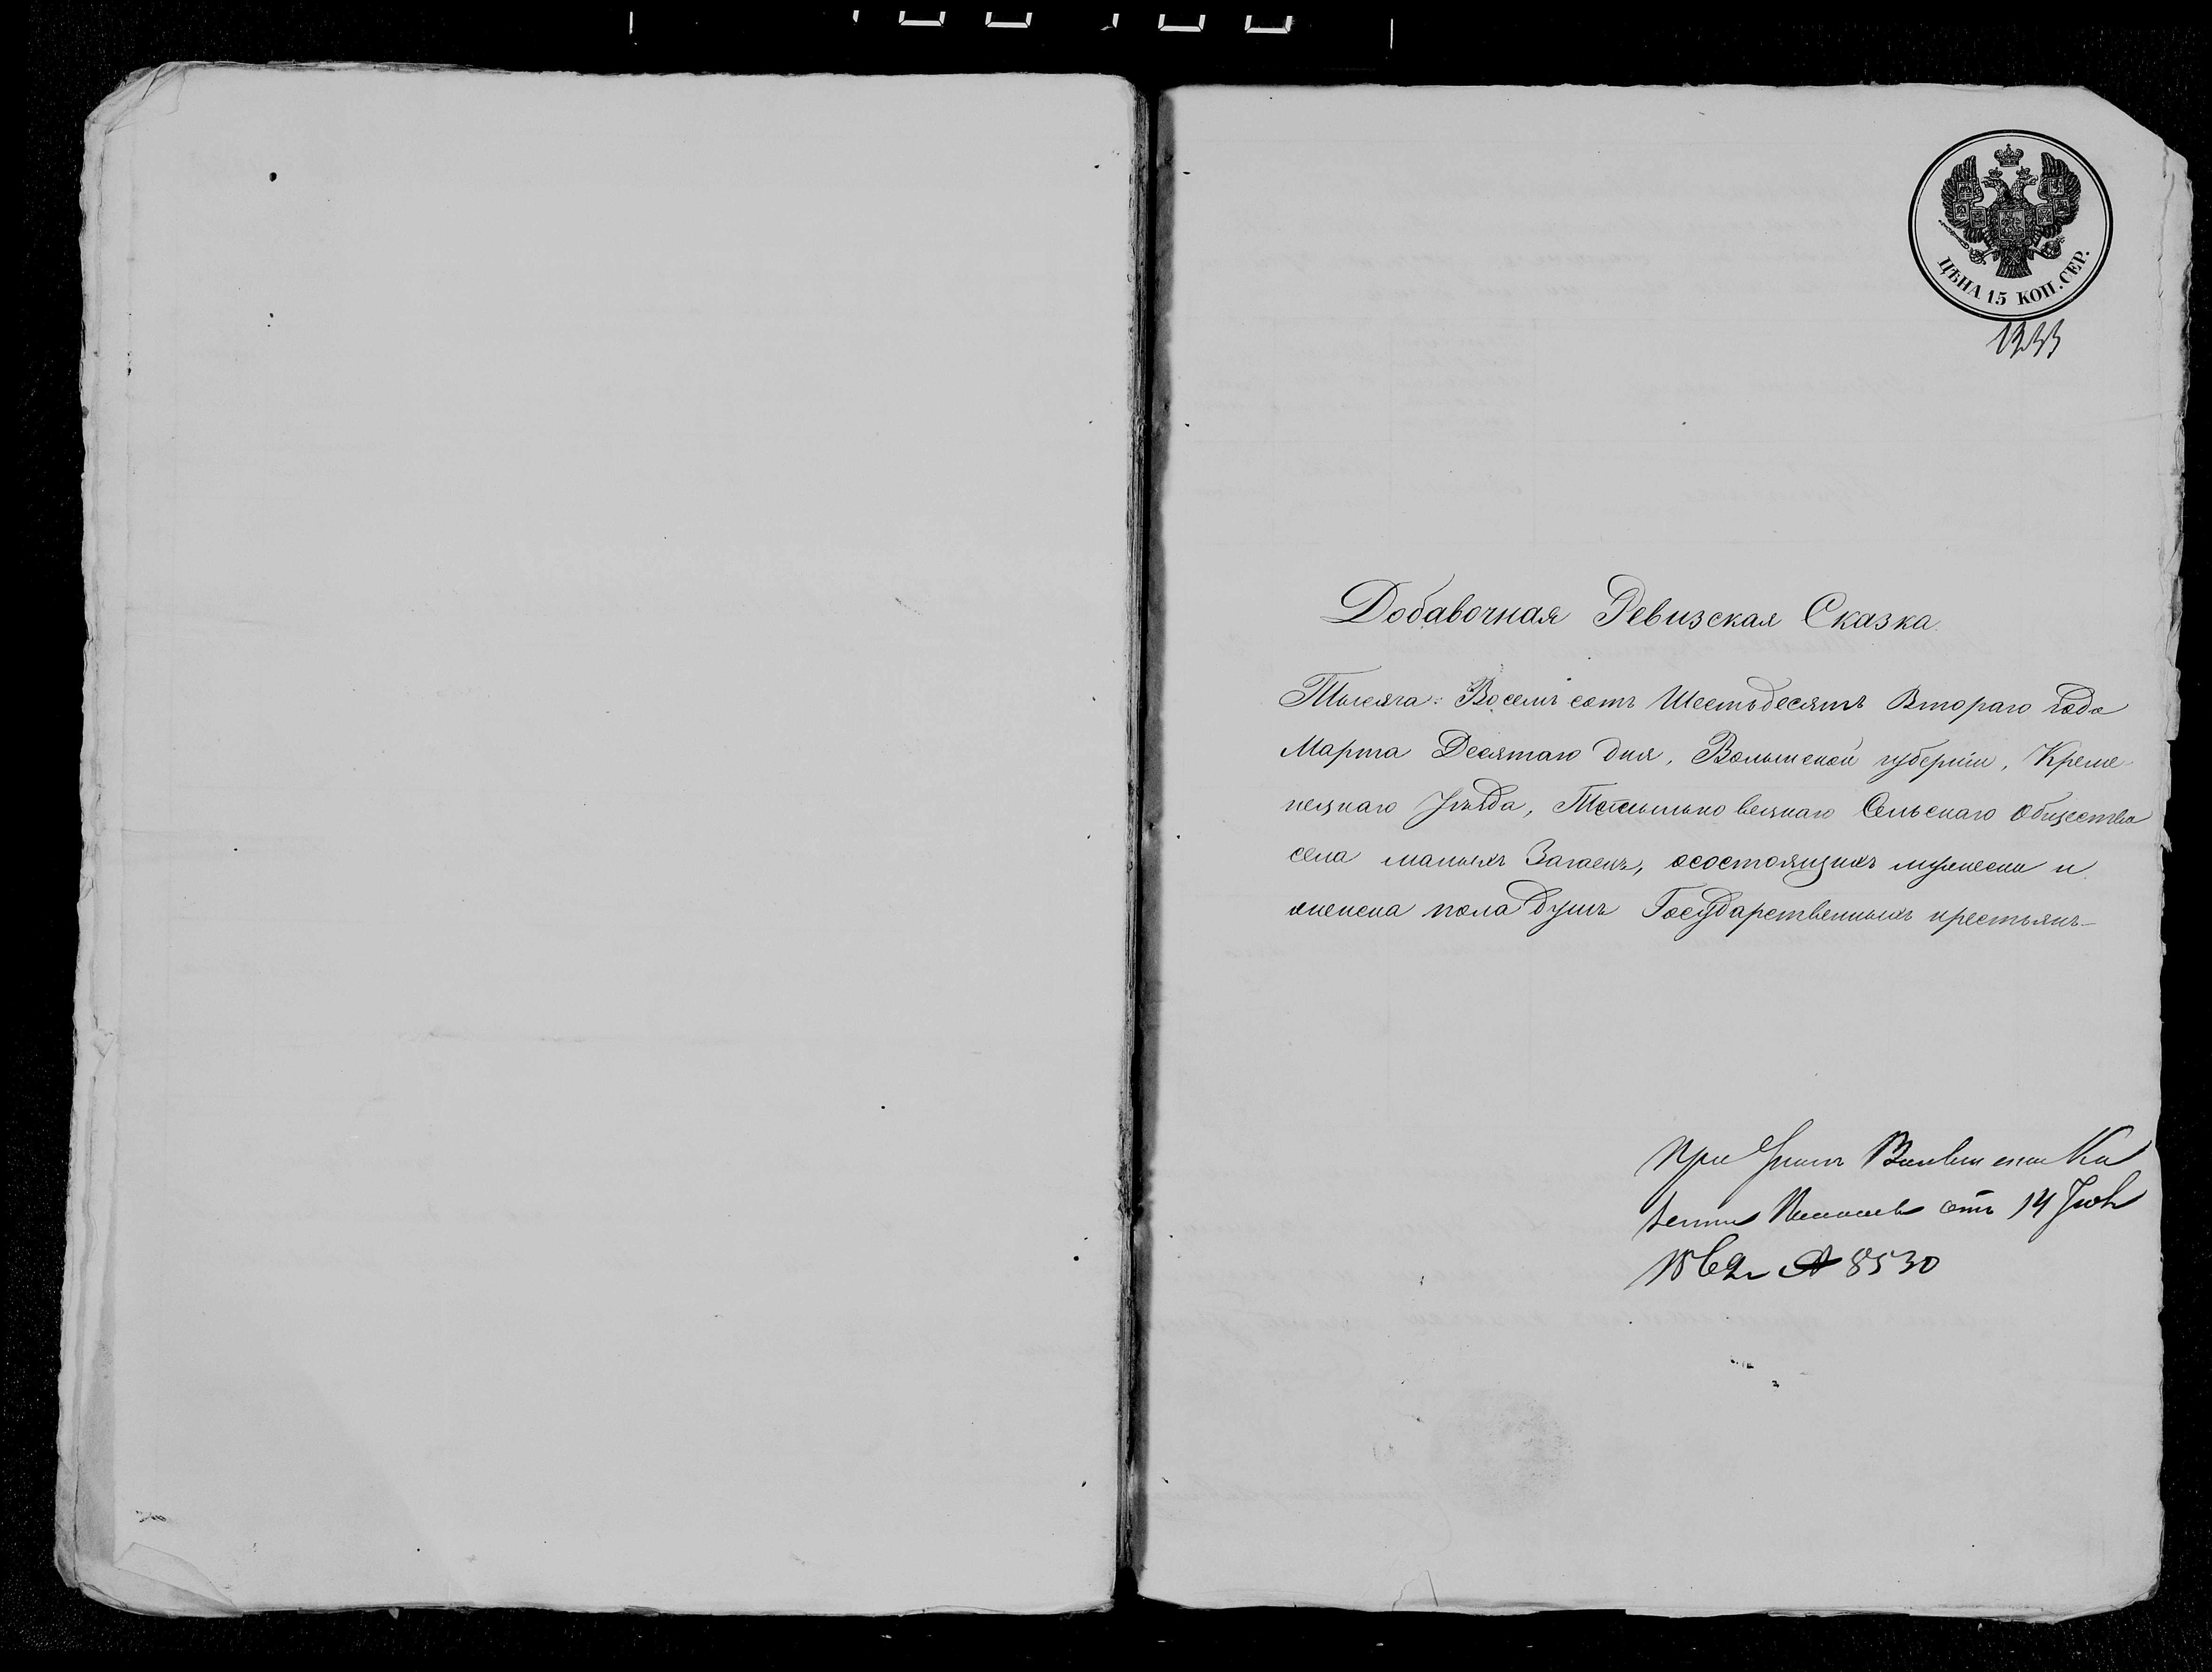 ЦѢНА 15 КОП. СЕР.
1233
Добавочная Ревизская Сказка.
Тысяча: Восемь сотъ Шестьдесятъ Втораго года
Марта Десятаго дня, Волынской губернiи, Креме-
нецкаго Уѣзда, Сельскаго Общества
села малыхъ Загаецъ, осостоящихъ мужеска и
женска пола душъ Государственныхъ крестьянъ-
При отъ 14
1862 № 8530